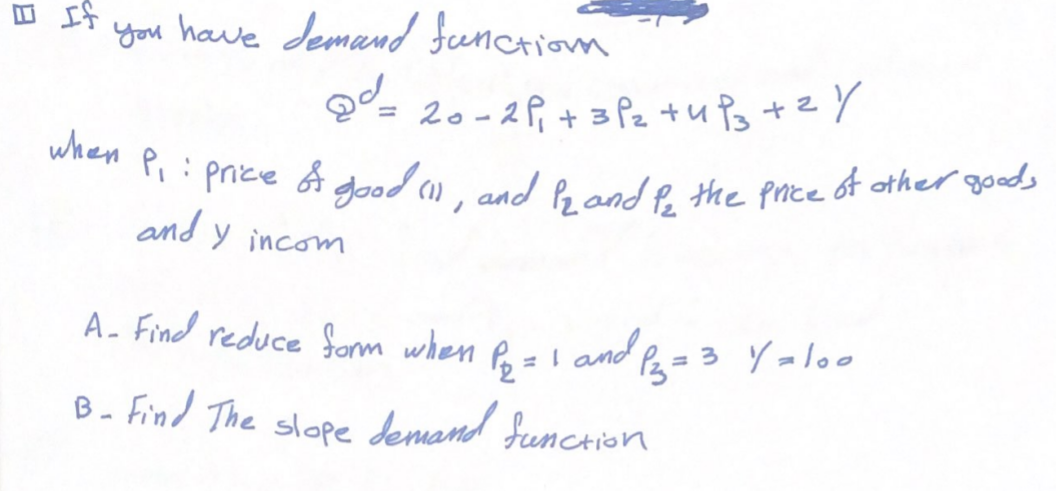 1 If you have demand function
Q^d = 20 - 2P₁ + 3P₂ + 4P₃ + 2Y
when P₁ : price of good (1), and P₂ and P₂ the price of other goods
and y incom
A- Find reduce form when P₂ = 1 and P₃ = 3 Y = 100
B- Find The slope demand function